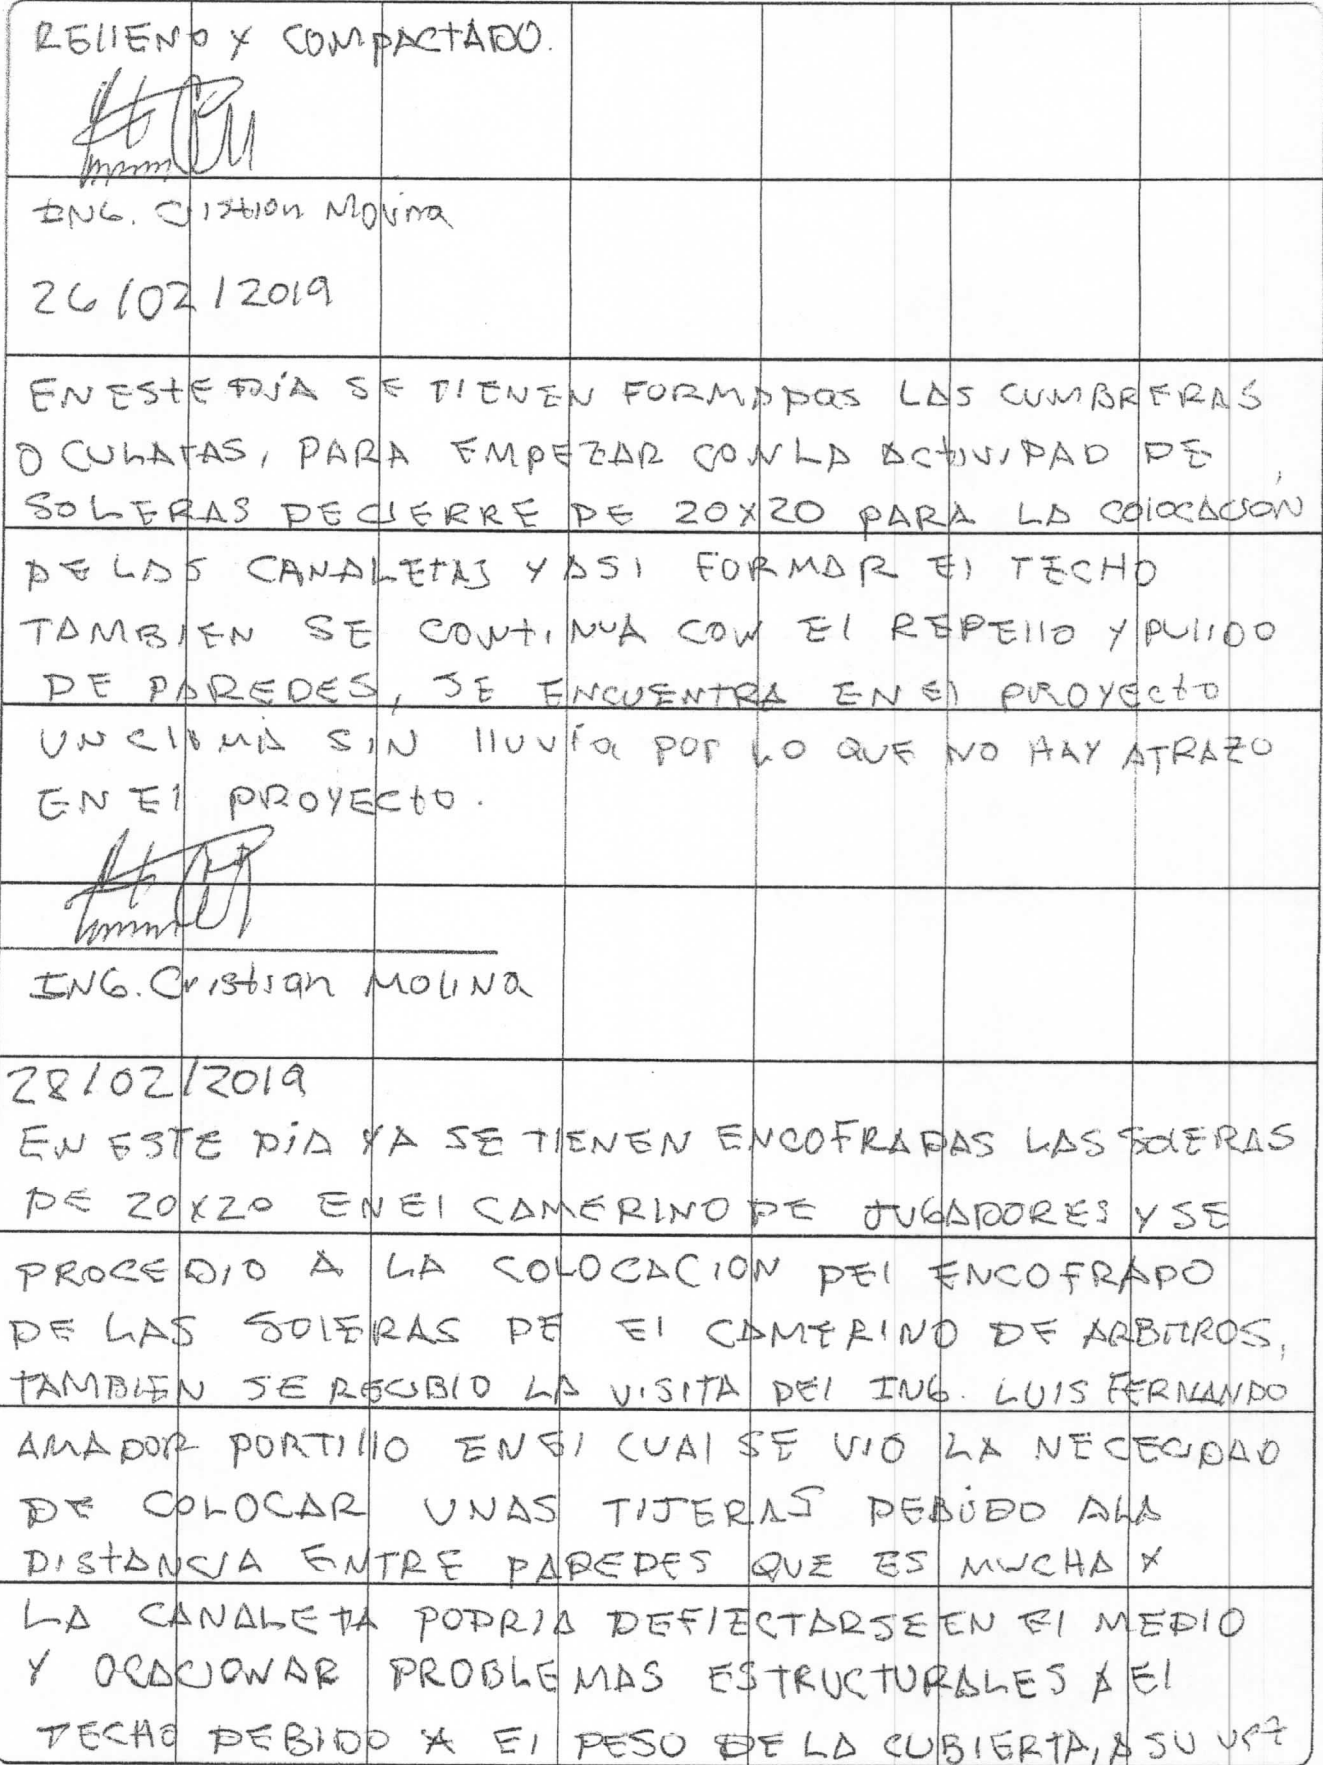 RELLENO Y COMPACTADO.
ING. Cristian Molina
26/02/2019
EN ESTE DÍA SE TIENEN FORMADAS LAS CUMBRERAS
O CULATAS, PARA EMPEZAR CON LA ACTIVIDAD DE
SOLERAS DE CIERRE DE 20X20 PARA LA COLOCACIÓN
DE LAS CANALETAS Y ASI FORMAR El TECHO
TAMBIEN SE CONTINUA CON El REPELLO Y PULIDO
DE PAREDES, SE ENCUENTRA EN El PROYECTO
UN CLIMA SIN lluvía por LO QUE NO HAY ATRAZO
EN El PROYECTO.
ING. Cristian MOLINA
28/02/2019
EN ESTE DÍA YA SE TIENEN ENCOFRADAS LAS SOLERAS
DE 20X20 EN El CAMERINO DE JUGADORES Y SE
PROCEDIO A LA COLOCACION DEl ENCOFRADO
DE LAS SOLERAS DE El CAMERINO DE ARBITROS,
TAMBIEN SE RECIBIO LA VISITA DEl ING. LUIS FERNANDO
AMADOR PORTILLO EN El CUAl SE VIO LA NECECIDAD
DE COLOCAR UNAS TIJERAS DEBIDO A LA
DISTANCIA ENTRE PAREDES QUE ES MUCHA Y
LA CANALETA PODRIA DEFLECTARSE EN El MEDIO
Y OCACIONAR PROBLEMAS ESTRUCTURALES A El
TECHO DEBIDO A El PESO DE LA CUBIERTA, A SU VEZ